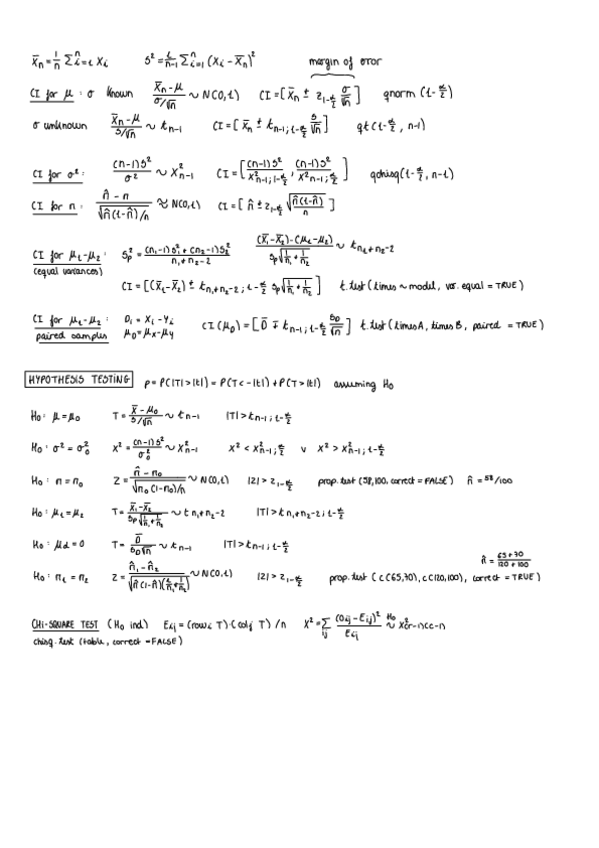 X̄n = 1/n Σⁿi=1 Xi   S² = 1/(n-1) Σⁿi=1 (Xi - X̄n)²   margin of error
CI for μ : σ known   (X̄n - μ)/(σ/√n) ~ N(0,1)   CI = [X̄n ± z1-α/2 σ/√n]   qnorm (1-α/2)
σ unknown   (X̄n - μ)/(S/√n) ~ tn-1   CI = [X̄n ± tn-1;1-α/2 S/√n]   qt(1-α/2, n-1)
CI for σ² :   (n-1)S²/σ² ~ X²n-1   CI = [(n-1)S²/X²n-1;1-α/2 , (n-1)S²/X²n-1;α/2]   qchisq(1-α/2, n-1)
CI for π :   (π̂ - π)/√(π̂(1-π̂)/n) ≈ N(0,1)   CI = [π̂ ± z1-α/2 √(π̂(1-π̂)/n)]
CI for μ1-μ2 :   Sp² = ((n1-1)S1² + (n2-1)S2²)/(n1+n2-2)   ((X̄1-X̄2)-(μ1-μ2))/(Sp√(1/n1+1/n2)) ~ tn1+n2-2
(equal variances)
CI = [(X̄1-X̄2) ± tn1+n2-2;1-α/2 Sp√(1/n1+1/n2)]   t.test(times ~ model, var.equal = TRUE)
CI for μ1-μ2 :   Di = Xi - Yi   CI(μD) = [D̄ ∓ tn-1;1-α/2 SD/√n]   t.test(timesA, timesB, paired = TRUE)
paired samples   μD = μx - μy
HYPOTHESIS TESTING   p = P(|T| > |t|) = P(T < -|t|) + P(T > |t|)   assuming H0
H0 : μ = μ0   T = (X̄ - μ0)/(S/√n) ~ tn-1   |T| > tn-1;1-α/2
H0 : σ² = σ0²   X² = (n-1)S²/σ0² ~ X²n-1   X² < X²n-1;α/2   v   X² > X²n-1;1-α/2
H0 : π = π0   Z = (π̂ - π0)/√(π0(1-π0)/n) ~ N(0,1)   |Z| > z1-α/2   prop.test (58,100, correct = FALSE)   π̂ = 58/100
H0 : μ1 = μ2   T = (X̄1-X̄2)/(Sp√(1/n1+1/n2)) ~ tn1+n2-2   |T| > tn1+n2-2;1-α/2
H0 : μd = 0   T = D̄/(SD/√n) ~ tn-1   |T| > tn-1;1-α/2   π̂ = (65+70)/(120+100)
H0 : π1 = π2   Z = (π̂1 - π̂2)/√(π̂(1-π̂)(1/n1+1/n2)) ~ N(0,1)   |Z| > z1-α/2   prop.test (c(65,70), c(120,100), correct = TRUE)
CHI-SQUARE TEST (H0 ind)   Eij = (rowi T)·(colj T)/n   X² = Σij (Oij - Eij)²/Eij ~H0 X²(r-1)(c-1)
chisq.test (table, correct = FALSE)